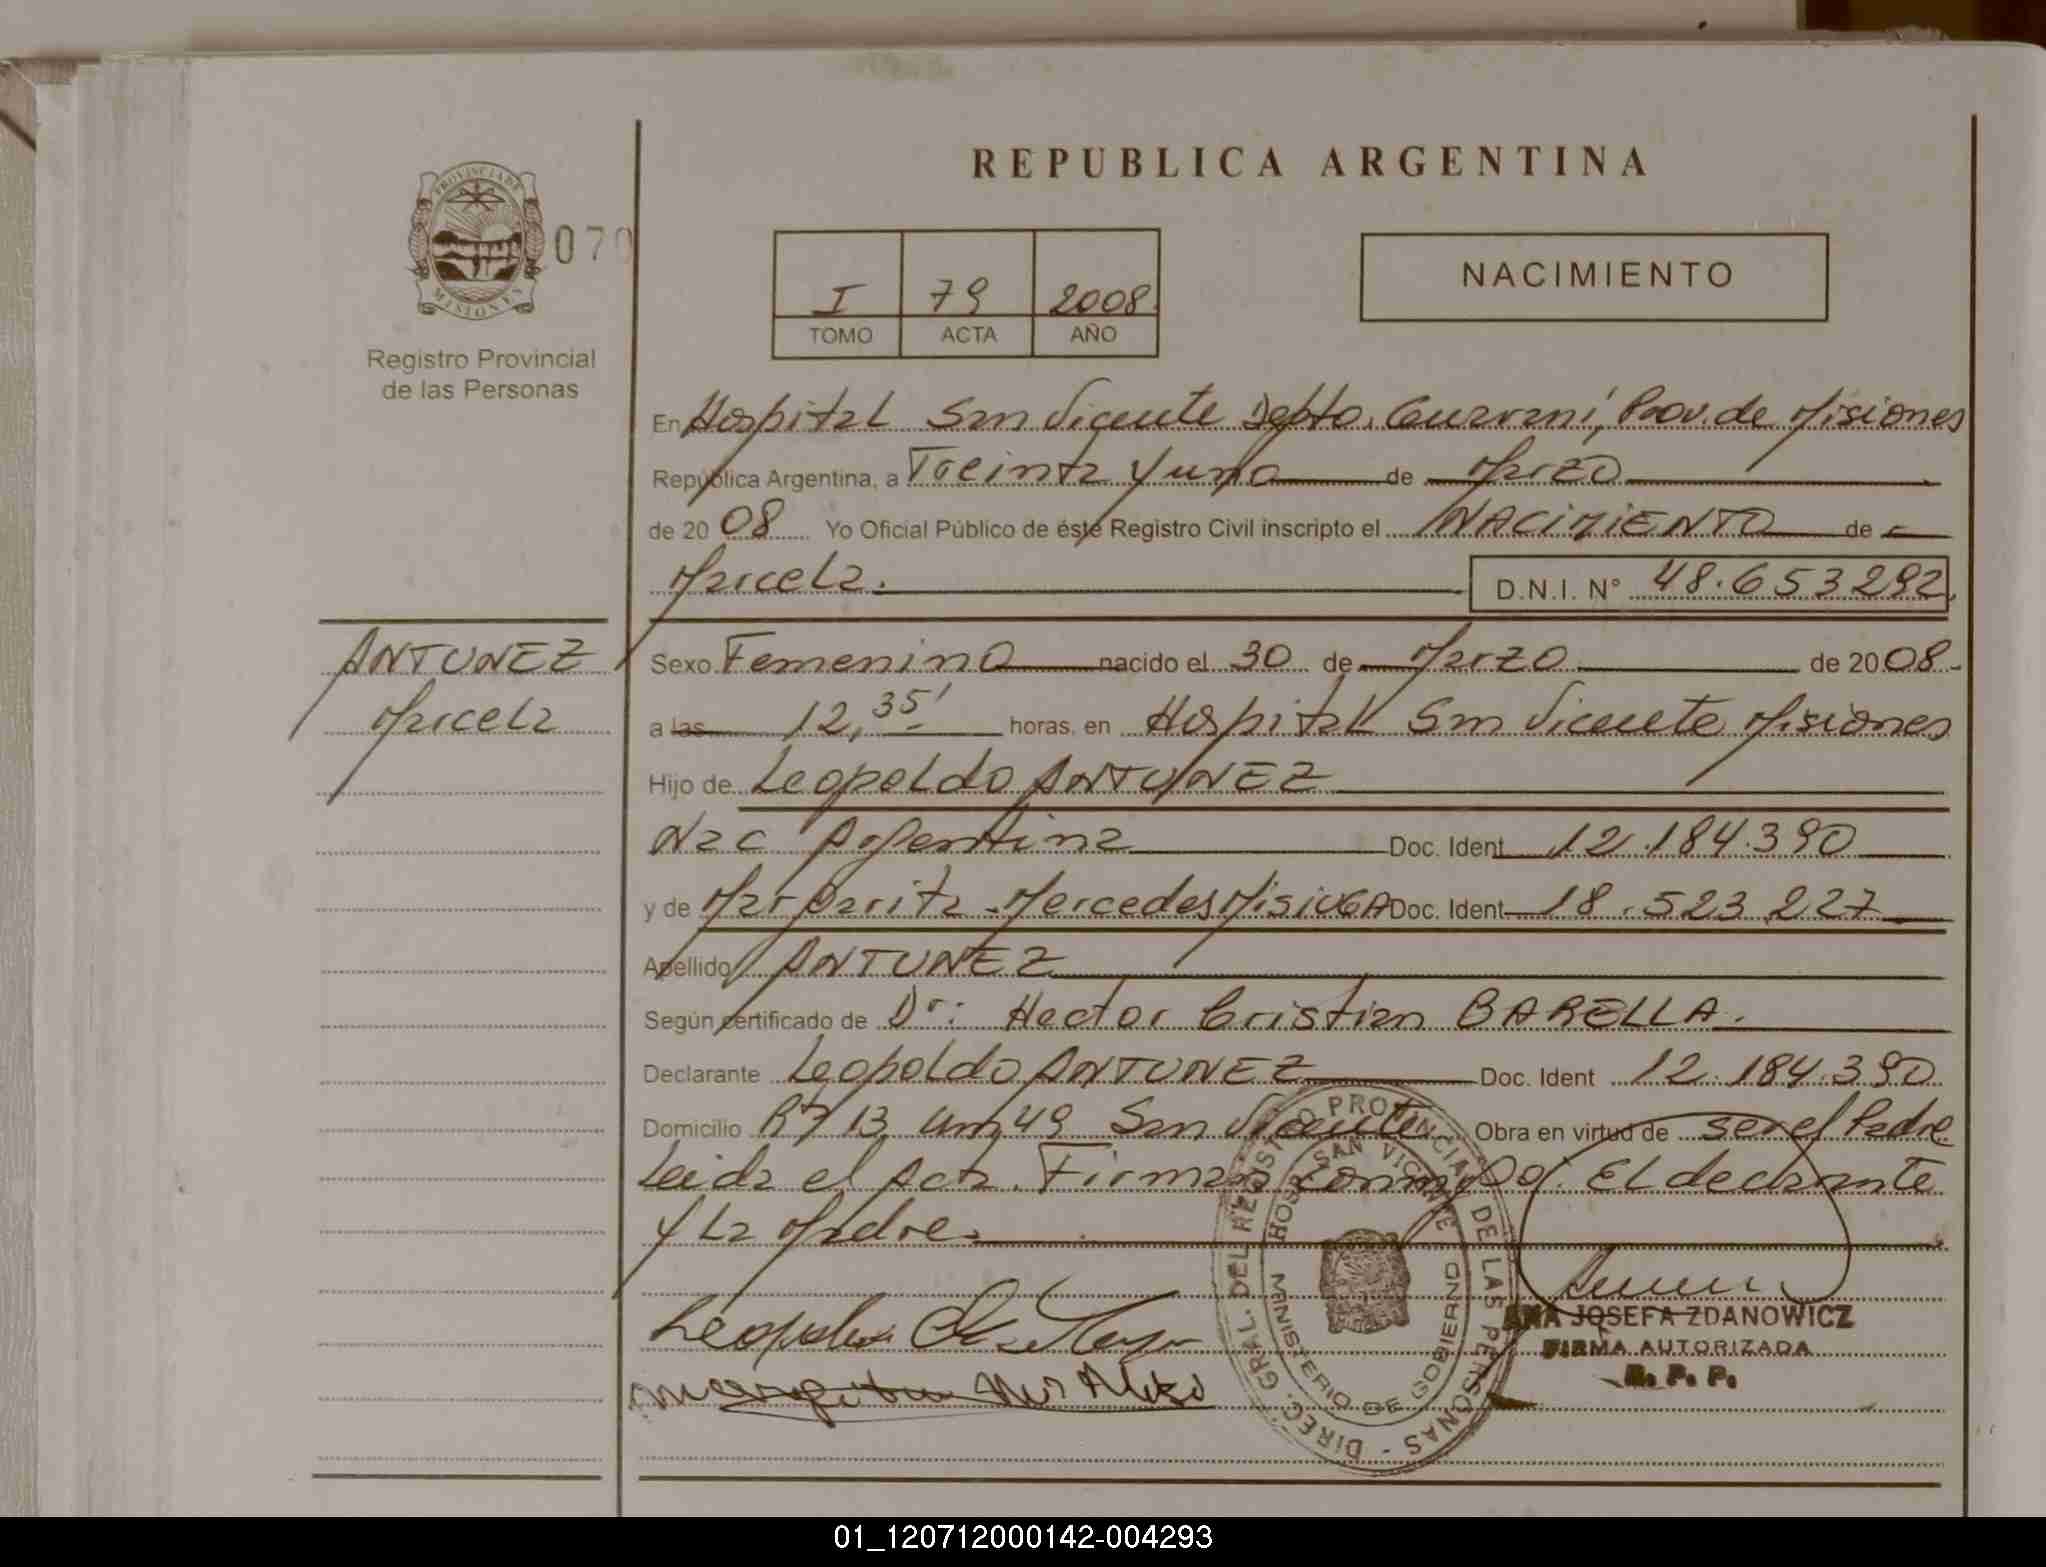 REPUBLICA ARGENTINA
PROVINCIA DE MISIONES
070
Registro Provincial
de las Personas
I 79 2008
TOMO ACTA AÑO
NACIMIENTO
En Hospital San Vicente Depto. Guarani, Prov. de Misiones
República Argentina, a Treinta y uno de Marzo
de 2008 Yo Oficial Público de éste Registro Civil inscripto el NACIMIENTO de
Marcela. D.N.I. N° 48.653292
ANTUNEZ
Marcela
Sexo Femenino nacido el 30 de Marzo de 2008
a las 12,35' horas, en Hospital San Vicente Misiones
Hijo de Leopoldo ANTUNEZ
Nac Argentina Doc. Ident 12.184.390
y de Margarita Mercedes Doc. Ident 18.523.227
Apellido ANTUNEZ
Según certificado de Dr: Hector Cristian BARELLA.
Declarante Leopoldo ANTUNEZ Doc. Ident 12.184.390
Domicilio 13 Km 49 San Vicente Obra en virtud de ser el Padre
Leida el Acta. Firman conmigo: El declarante
y La Madre.
DIREC. GRAL. DEL REGISTRO PROVINCIAL DE LAS PERSONAS
HOSP. SAN VICENTE
MINISTERIO DE GOBIERNO
ANA JOSEFA ZDANOWICZ
FIRMA AUTORIZADA
R. P. P.
01_120712000142-004293